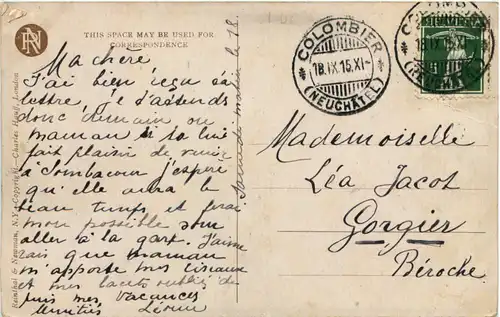 RN
THIS SPACE MAY BE USED FOR
CORRESPONDENCE
Ma chère
J'ai bien reçu ta
lettre, je t'attends
donc demain ou
maman si ça lui
fait plaisir de venir
à Sombacour j'espère
qu'elle aura le
beau temps et ferai
mon possible pour
aller à la gare. J'aime
rais que maman
m'apporte mes ciseaux
et mes lacets oubliés de
puis mes vacances
Amitiés Léonie
Samedi matin le 18.
Reinthal & Newman, N.Y. Copyright. Charles Hauff, London
COLOMBIER
18.IX.15.XI-
(NEUCHÂTEL)
18.IX.15.XI-
(NEUCHÂTEL)
Mademoiselle
Léa Jacot
Gorgier
Béroche.